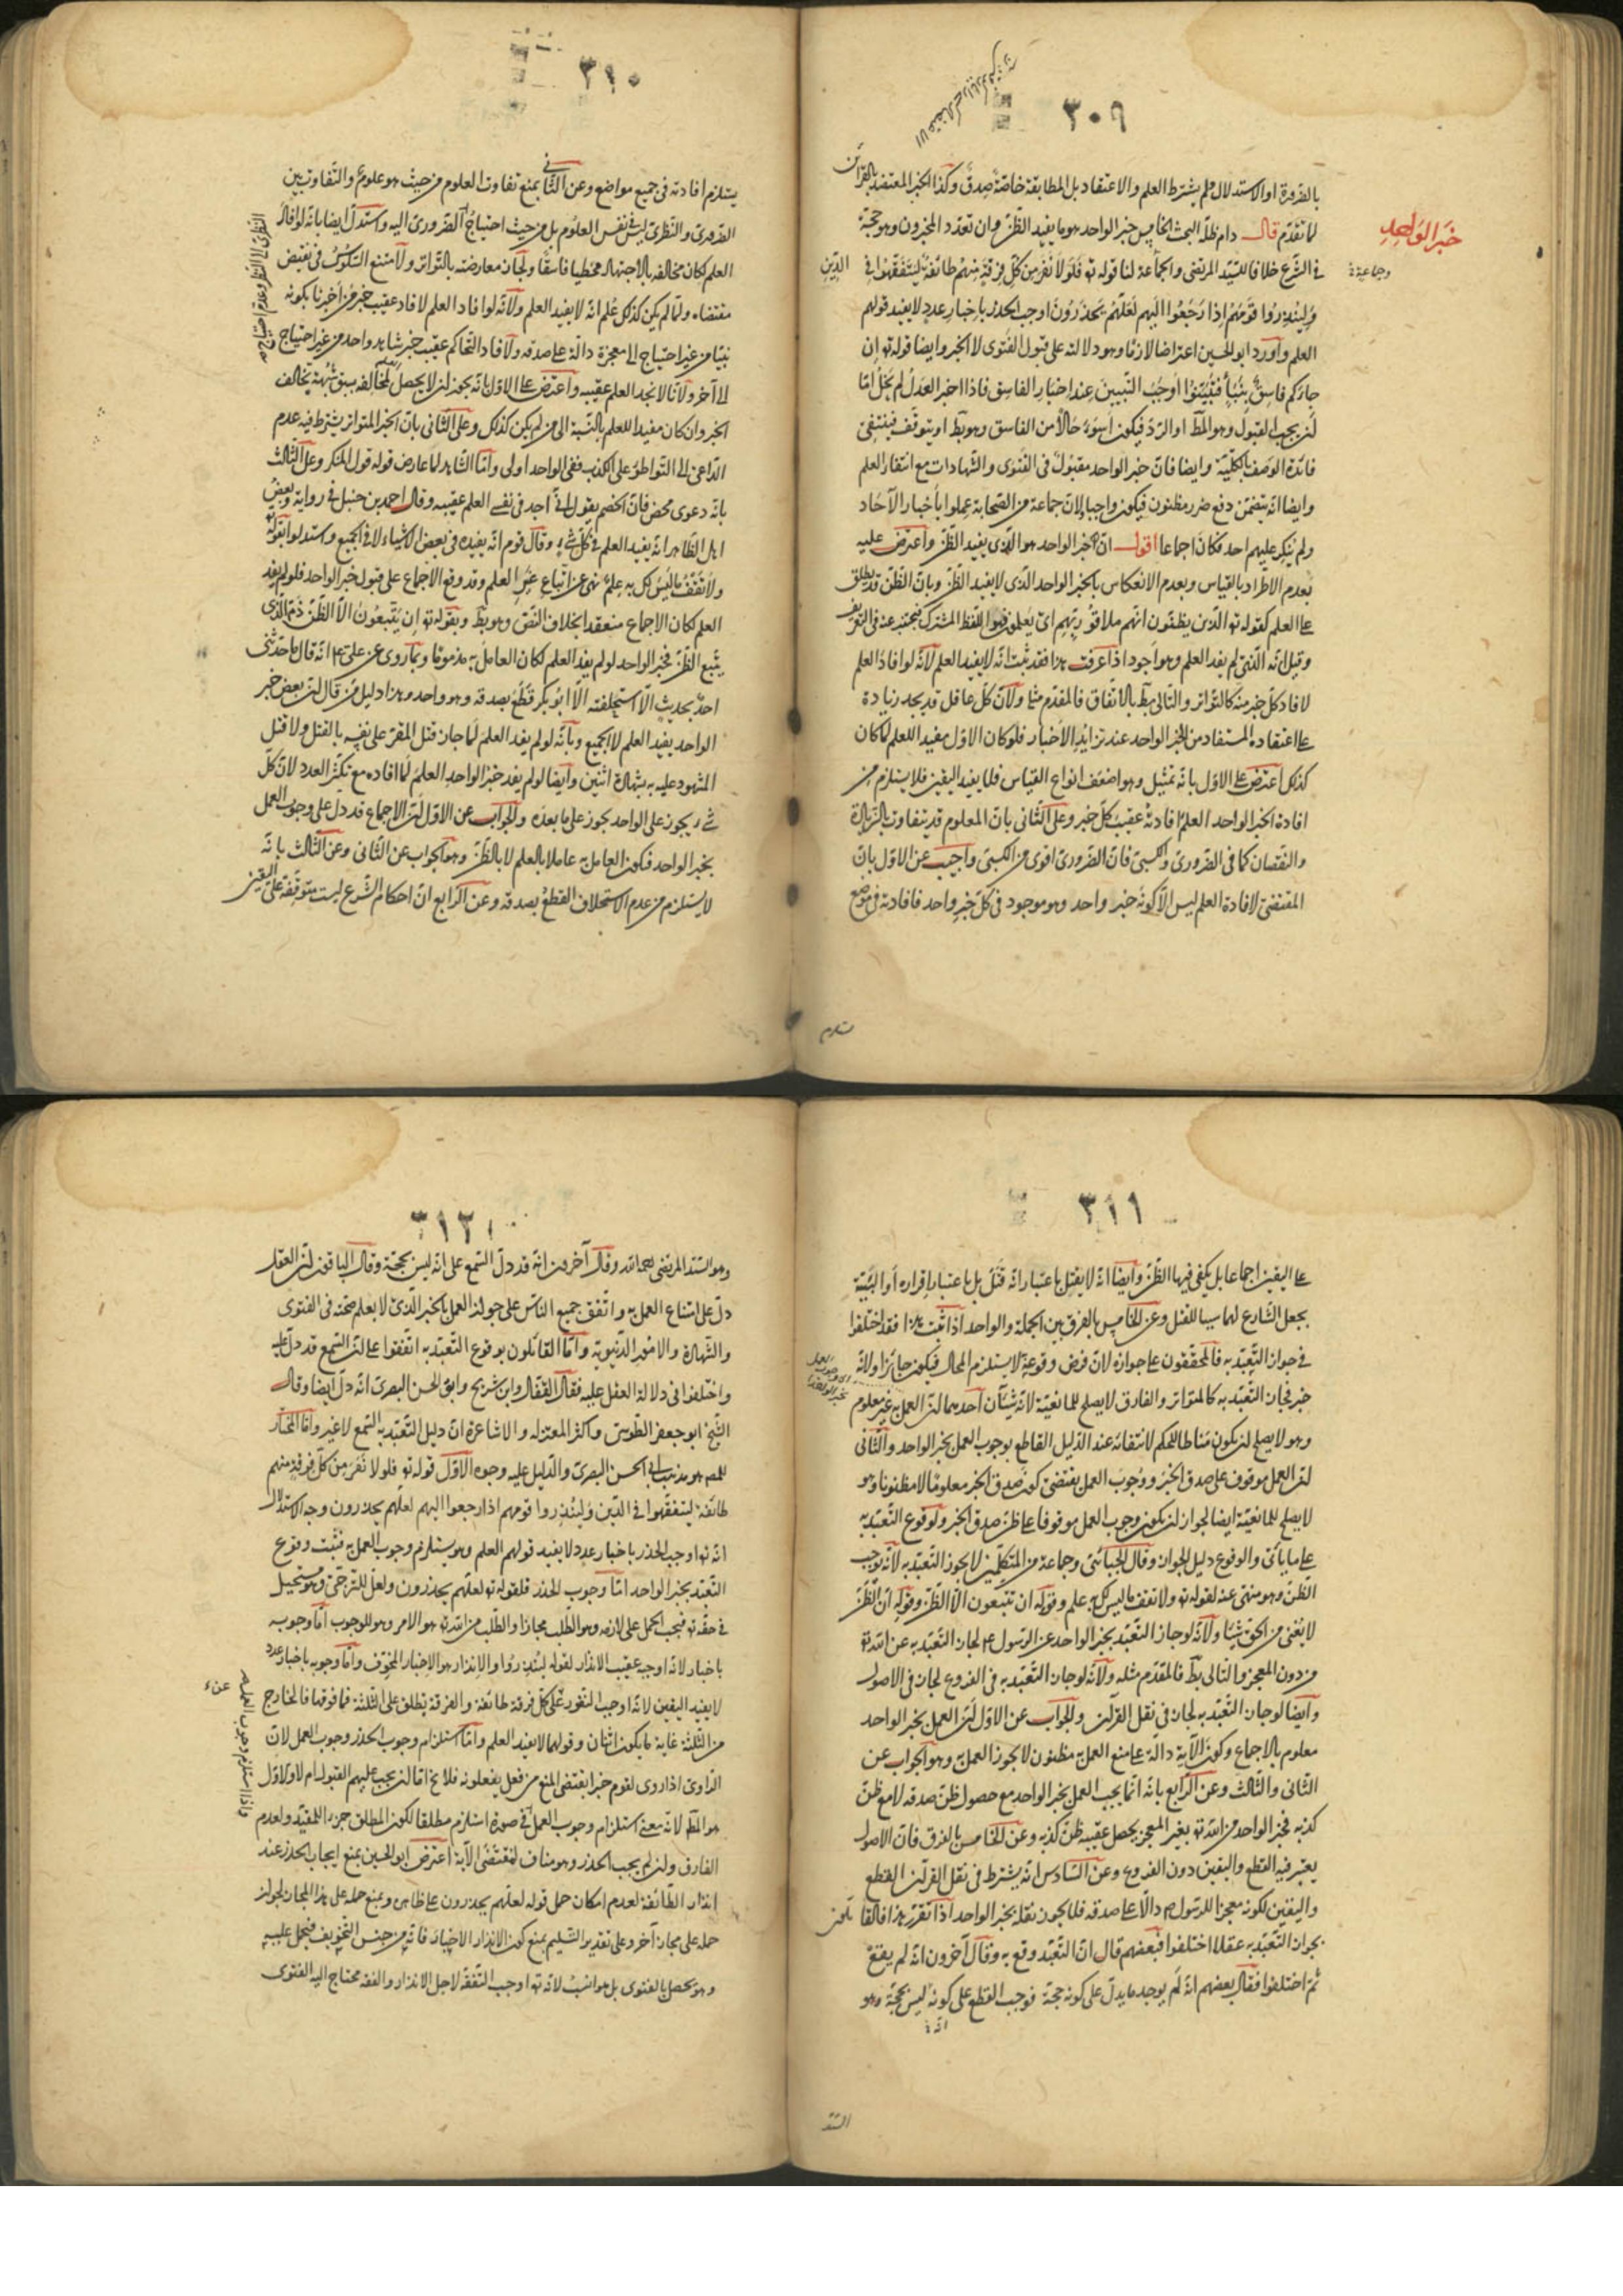 ٣٠٩
بالضرورة او الاستدلال فلم يشترط العلم والاعتقاد بل المطابقة خاصّة صدق وكذا الخبر المعتضد بالقرائن
خبر الواحد
لما تقدّم قال دام ظلّه البحث الخامس خبر الواحد هو ما يفيد الظنّ وان تعدد المخبرون وهو حجّة
وجماعة
في الشّرع خلافا للسّيد المرتضى والجماعة لنا قوله تع فلولا نفر من كلّ فرقة منهم طائفة ليتفقّهوا في الدّين
وليُنذروا قومهم اذا رجعوا اليهم لعلّهم يحذرون اوجب الحذر باخبار عدد لا يفيد قولهم
العلم واورد ابو الحسين اعتراضا لازما وهو دلالته على قبول الفتوى لا الخبر وايضا قوله تع ان
جاءكم فاسق بنبأ فتبيّنوا اوجب التبيين عند اخبار الفاسق فاذا اخبر العدل لم يخل امّا
ان يجب القبول وهو المط او الردّ فيكون اسوء حالا من الفاسق وهو بط او يتوقّف فينتفي
فائدة الوصف بالكلّيّة وايضا فان خبر الواحد مقبول في الفتوى والشّهادات مع انتفاء العلم
وايضا انّه يتضمّن دفع ضرر مظنون فيكون واجبا ولانّ جماعة من الصّحابة عملوا باخبار الآحاد
ولم ينكر عليهم احد فكان اجماعا اقول انّ خبر الواحد هو الّذي يفيد الظنّ واعترض عليه
بعدم الاطّراد بالقياس وبعدم الانعكاس بالخبر الواحد الّذي لا يفيد الظنّ وبانّ الظنّ قد يطلق
على العلم كقوله تع الّذين يظنّون انّهم ملاقو ربّهم اى يعلمون فهو اللّفظ المشترك فيجتنب عنه في التعريف
وقيل انّه الّذي لم يفد العلم وهو اجود اذا عرفت هذا فقد ثبت انّه لا يفيد العلم لانّه لو افاد العلم
لافاد كلّ خبر منه كالتّواتر والتّالي بط بالاتّفاق فالمقدّم مثله ولانّ كلّ عاقل قد يجد زيادة
على اعتقاده المستفاد من الخبر الواحد عند تزايد الاخبار فلو كان الاوّل مفيدا للعلم لما كان
كذلك اعترض على الاوّل بانّه تمثيل وهو اضعف انواع القياس فلا يفيد اليقين فلا يستلزم من
افادة الخبر الواحد العلم افادته عقيب كلّ خبر وعلى الثّاني بانّ المعلوم قد يتفاوت بالزّيادة
والنّقصان كما في الضّروريّ والكسبيّ فانّ الضّروريّ اقوى من الكسبيّ واجيب عن الاوّل بانّ
المقتضي لافادة العلم ليس الّا كونه خبر واحد وهو موجود في كلّ خبر واحد فافادته في موضع
٣١٠
يستلزم افادته في جميع مواضع وعن الثّاني بمنع تفاوت العلوم من حيث هو علوم والتّفاوت بين
الضّروريّ والنّظريّ ليس في نفس العلوم بل من حيث احتياج الضّروريّ اليه واستدلّ ايضا بانّه لو افاد
العلم لكان مخالفه بالاجتهاد مخطيا فاسقا ولجاز معارضته بالتّواتر ولامتنع التشكّك في نقيض
مقتضاه ولمّا لم يكن كذلك عُلم انّه لا يفيد العلم ولانّه لو افاد العلم لافاد عقيب خبر من اخبرنا بكونه
نبيّا من غير احتياج الى معجزة دالّة على صدقه ولافاد التحاكم عقيب خبر شاهد واحد من غير احتياج
الى آخر ولانّا لا نجد العلم عقيبه واعترض على الاوّل بانّه يجوز ان لا يحصل لمخالفه بسبق شبهة تخالف
الخبر وان كان مفيدا للعلم بالنّسبة الى من لم يكن كذلك وعلى الثّاني بانّ الخبر المتواتر يشترط فيه عدم
الدّاعي الى التّواطؤ على الكذب ففي الواحد اولى وامّا الشّاهد لما عارض قوله قول المنكر وعلى الثّالث
بانّه دعوى محض فانّ الخصم يقول انّي اجد في نفسي العلم عقيبه وقال احمد بن حنبل في رواية وبعض
اهل الظّاهر انّه يفيد العلم في كلّ شيء وقال قوم انّه يفيده في بعض الاشياء لا في الجميع واستدلوا بقوله
ولا تقف ما ليس لك به علم نهي عن اتّباع غير العلم وقد وقع الاجماع على قبول خبر الواحد فلو لم يفد
العلم لكان الاجماع منعقدا بخلاف النّصّ وهو بط وبقوله تع ان يتّبعون الّا الظّنّ ذمّ الّذي
يتّبع الظّنّ فخبر الواحد لو لم يفد العلم لكان العامل به مذموما وبما روي عن علي ع انّه قال ما حدّثني
احد بحديث الّا استحلفته الّا ابو بكر قطع بصدقه وهو واحد وهذا دليل من قال انّ بعض خبر
الواحد يفيد العلم لا الجميع وبانّه لو لم يفد العلم لما جاز قتل المقرّ على نفسه بالقتل ولا قتل
المشهود عليه به بشهادة اثنين وايضا لو لم يفد خبر الواحد العلم لما افاده مع تكثّر العدد لانّ كلّ
شيء يجوز على الواحد يجوز على ما بعده والجواب عن الاوّل انّ الاجماع قد دلّ على وجوب العمل
بخبر الواحد فيكون العامل به عاملا بالعلم لا بالظّنّ وهو الجواب عن الثّاني وعن الثّالث بانّه
لا يستلزم من عدم الاستحلاف القطع بصدقه وعن الرّابع انّ احكام الشّرع ليست متوقّفة على اليقين
٣١١
على اليقين اجماعا بل يكفي فيها الظّنّ وايضا انّه لا يقتل باعتبار انّه قتل بل باعتبار اقراره او البيّنة
بجعل الشّارع لهما سببا للقتل وعن الخامس بالفرق بين الجملة والواحد اذا ثبت هذا فقد اختلفوا
في جواز التّعبّد به فالمحقّقون على جوازه لانّ فرض وقوعه لا يستلزم المحال فيكون جائزا ولانّه
خبر فجاز التّعبّد به كالمتواتر والفارق لا يصلح للمانعيّة لانّه شيئان احدهما انّ العمل به غير معلوم
وهو لا يصلح ان يكون مناطا للحكم لانتفائه عند الدّليل القاطع بوجوب العمل بخبر الواحد والثّاني
انّ العمل موقوف على صدق الخبر ووجوب العمل يقتضي كون صدق الخبر معلوما لا مظنونا وهو
لا يصلح للمانعيّة ايضا لجواز ان يكون وجوب العمل موقوفا على ظنّ صدق الخبر ولوقوع التّعبّد به
على ما يأتي والوقوع دليل الجواز وقال الجبّائيّ وجماعة من المتكلّمين لا يجوز التّعبّد به لانّه يوجب
الظّنّ وهو منهيّ عنه لقوله تع ولا تقف ما ليس لك به علم وقوله ان تتبعون الّا الظّنّ وقوله انّ الظّنّ
لا يغني من الحقّ شيئا ولانّه لو جاز التّعبّد بخبر الواحد عن الرّسول ع لجاز التّعبّد به عن الله تع
من دون المعجز والتّالي بط فالمقدّم مثله ولانّه لو جاز التّعبّد به في الفروع لجاز في الاصول
وايضا لو جاز التّعبّد به لجاز في نقل القرآن والجواب عن الاوّل انّ العمل بخبر الواحد
معلوم بالاجماع وكون الآية دالّة على منع العمل بمظنون لا يجوز العمل به وهو الجواب عن
الثّاني والثّالث وعن الرّابع بانّه انّما يجب العمل بخبر الواحد مع حصول ظنّ صدقه لا مع ظنّ
كذبه فخبر الواحد من الله تع بغير المعجز يحصل عقيبه ظنّ كذبه وعن الخامس بالفرق فانّ الاصول
يعتبر فيه القطع واليقين دون الفروع وعن السّادس انّه يشترط في نقل القرآن القطع
واليقين لكونه معجزا للرّسول ص دالّا على صدقه فلا يجوز نقله بخبر الواحد اذا تقرّر هذا فالقائلون
بجواز التّعبّد به عقلا اختلفوا فبعضهم قال انّ التّعبّد وقع به وقال آخرون انّه لم يقع
ثمّ اختلفوا فقال بعضهم انّه لم يوجد ما يدلّ على كونه حجّة فوجب القطع على كونه ليس بحجّة وهو
السّيّد
٣١٢
وهو السّيّد المرتضى رحمه الله وقال آخرون انّه قد دلّ السّمع على انّه ليس بحجّة وقال الباقون انّ العقل
دلّ على امتناع العمل به واتّفق جميع النّاس على جواز العمل بالخبر الّذي لا يعلم صحّته في الفتوى
والشّهادة والامور الدّنيويّة وامّا القائلون بوقوع التّعبّد به اتّفقوا على انّ السّمع قد دلّ عليه
واختلفوا في دلالة العقل عليه فقال القفّال وابن شريح وابو الحسن البصري انّه دلّ ايضا وقال
الشّيخ ابو جعفر الطّوسيّ واكثر المعتزله والاشاعرة انّ دليل التّعبّد به السّمع لا غير وامّا المختار
للمص هو مذهب ابي الحسن البصريّ والدّليل عليه وجوه الاوّل قوله تع فلولا نفر من كلّ فرقة منهم
طائفة ليتفقّهوا في الدّين ولينذروا قومهم اذا رجعوا اليهم لعلّهم يحذرون وجه الاستدلال
انّه تع اوجب الحذر باخبار عدد لا يفيد قولهم العلم وهو يستلزم وجوب العمل به فثبت وقوع
التّعبّد بخبر الواحد امّا وجوب الحذر فلقوله تع لعلّهم يحذرون ولعلّ للتّرجّي وهو مستحيل
في حقّه تع فيجب الحمل على لازمه وهو الطّلب مجازا والطّلب من الله تع هو الامر وهو للوجوب امّا وجوبه
باخبار لانّه اوجبه عقيب الانذار لقوله لينذروا والانذار هو الاخبار المخوّف وامّا وجوبه باخبار عدد
لا يفيد اليقين لانّه اوجب النّفور على كلّ فرقة طائفة والفرقة يطلق على الثّلثة فما فوقها فالخارج
من الثّلثة غاية ما يكون اثنان وقولهما لا يفيد العلم وامّا استلزام وجوب الحذر وجوب العمل لانّ
الرّاوي اذا روى لقوم خبرا يقتضي المنع من فعل يفعلونه فلا يخ امّا ان يجب عليهم القبول ام لا والاوّل
هو المط لانّه معنى استلزام وجوب العمل في صورة استلزم مطلقا لكون المطلق جزء للمقيّد ولعدم
الفارق وان لم يجب الحذر وهو مناف لمقتضى الآية اعترض ابو الحسين بمنع ايجاب الحذر عند
انذار الطّائفة لعدم امكان حمل قوله لعلّهم يحذرون على ظاهره وبمنع حمله على هذا المجاز لجواز
حمله على مجاز آخر وعلى تقدير التّسليم بمنع كون الانذار الاخبار فانّه من جنس التّخويف فيحمل عليه
وهو يحصل بالفتوى بل هو انسب لانّه تع اوجب التّفقّه لاجل الانذار والفقه محتاج اليه الفتوى